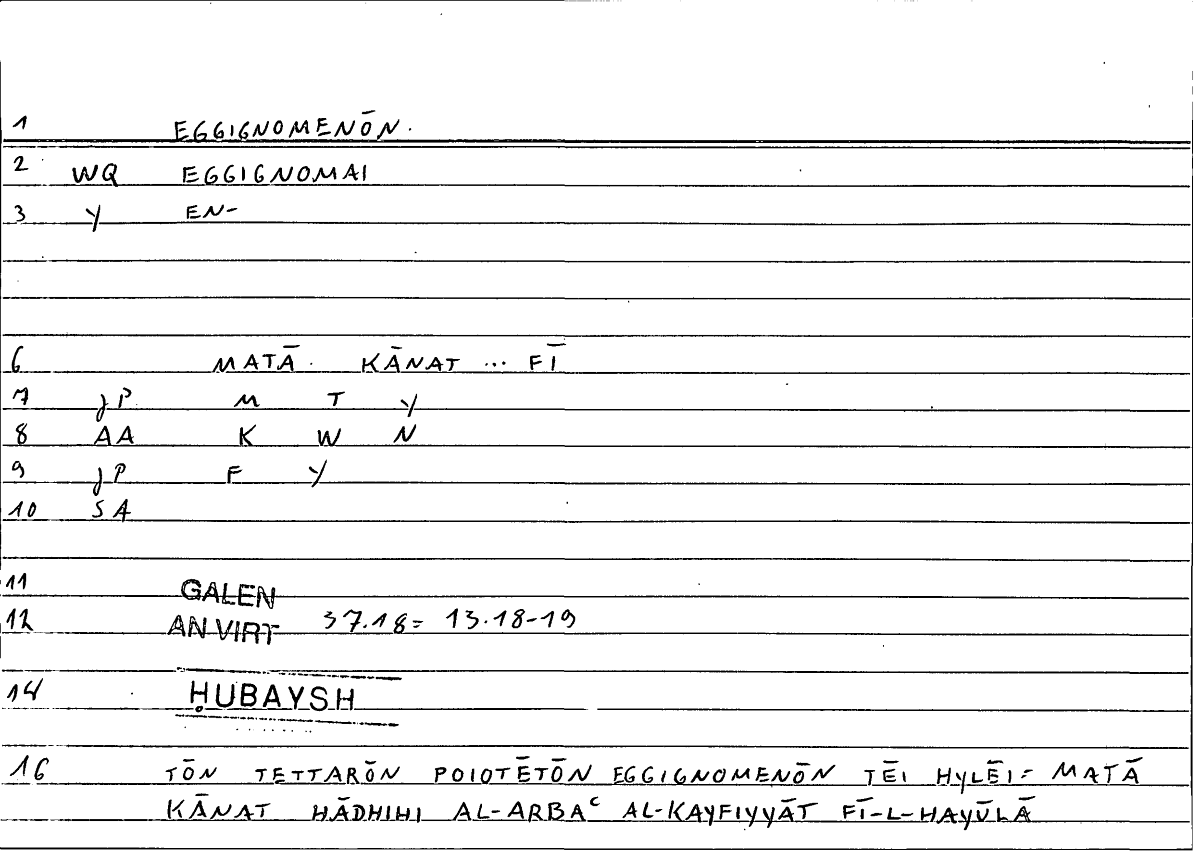 1 EGGIGNOMENŌN.
2 WQ EGGIGNOMAI
3 Y EN-
6 MATĀ. KĀNAT ... FĪ
7 JP M T Y
8 AA K W N
9 JP F Y
10 SA
11 GALEN
12 AN VIRT 37.18= 13.18-19
14 ḤUBAYSH
16 TŌN TETTARŌN POIOTĒTŌN EGGIGNOMENŌN TĒI HYLĒI= MATĀ
KĀNAT HĀDHIHI AL-ARBAᶜ AL-KAYFIYYĀT FĪ-L-HAYŪLĀ